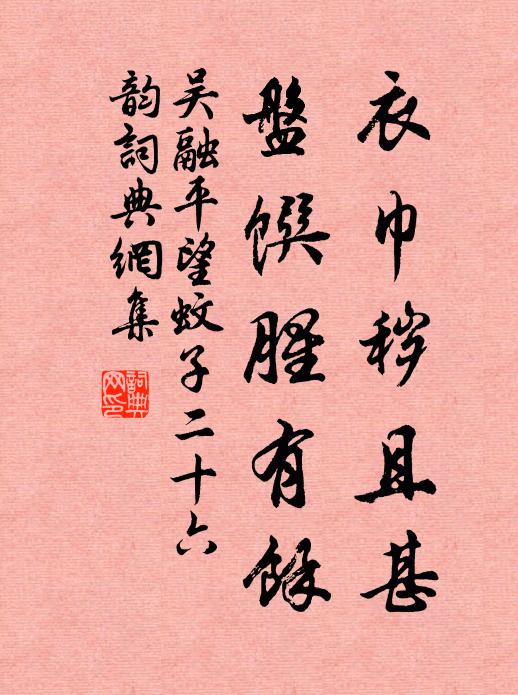 衣巾秽且甚
盤饌腥有餘
吴融平望蚊子二十六
韵詞典網集
詞典网印